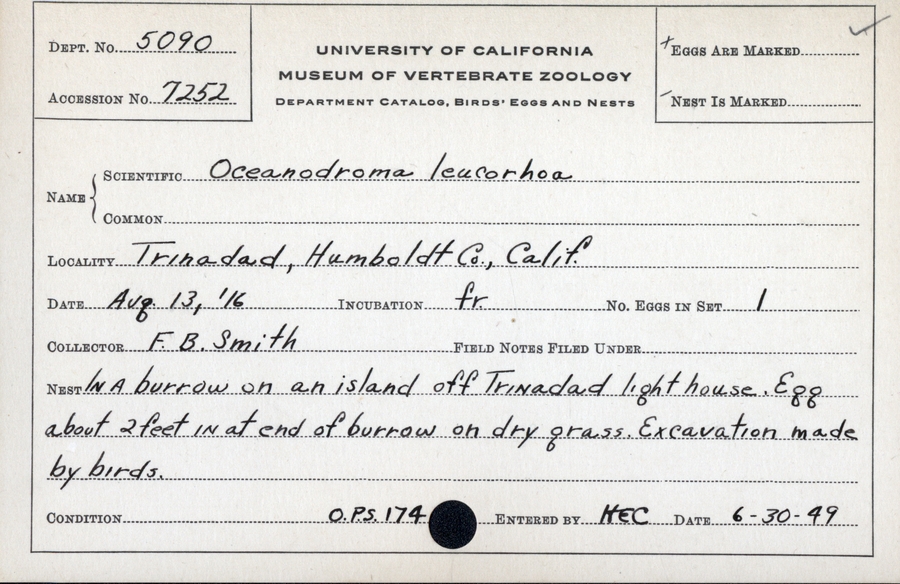 DEPT. No. 5090
ACCESSION No. 7252
UNIVERSITY OF CALIFORNIA
MUSEUM OF VERTEBRATE ZOOLOGY
DEPARTMENT CATALOG, BIRDS' EGGS AND NESTS
+EGGS ARE MARKED
NEST IS MARKED
NAME
SCIENTIFIC Oceanodroma leucorhoa
COMMON
LOCALITY Trinadad, Humboldt Co., Calif.
DATE Aug. 13, '16 INCUBATION fr. No. EGGS IN SET 1
COLLECTOR F. B. Smith FIELD NOTES FILED UNDER
NEST IN A burrow on an island off Trinadad light house. Egg
about 2 feet in at end of burrow on dry grass. Excavation made
by birds.
CONDITION O.P.S. 174 ENTERED BY HEC DATE 6-30-49